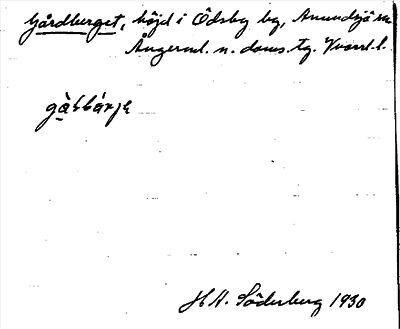 Gårdberget, höjd i Ödsby by, Anundsjö sn
Ångerml. n. doms. tg. Västl. l.
gàḷḷbárje
H A. Söderberg 1930